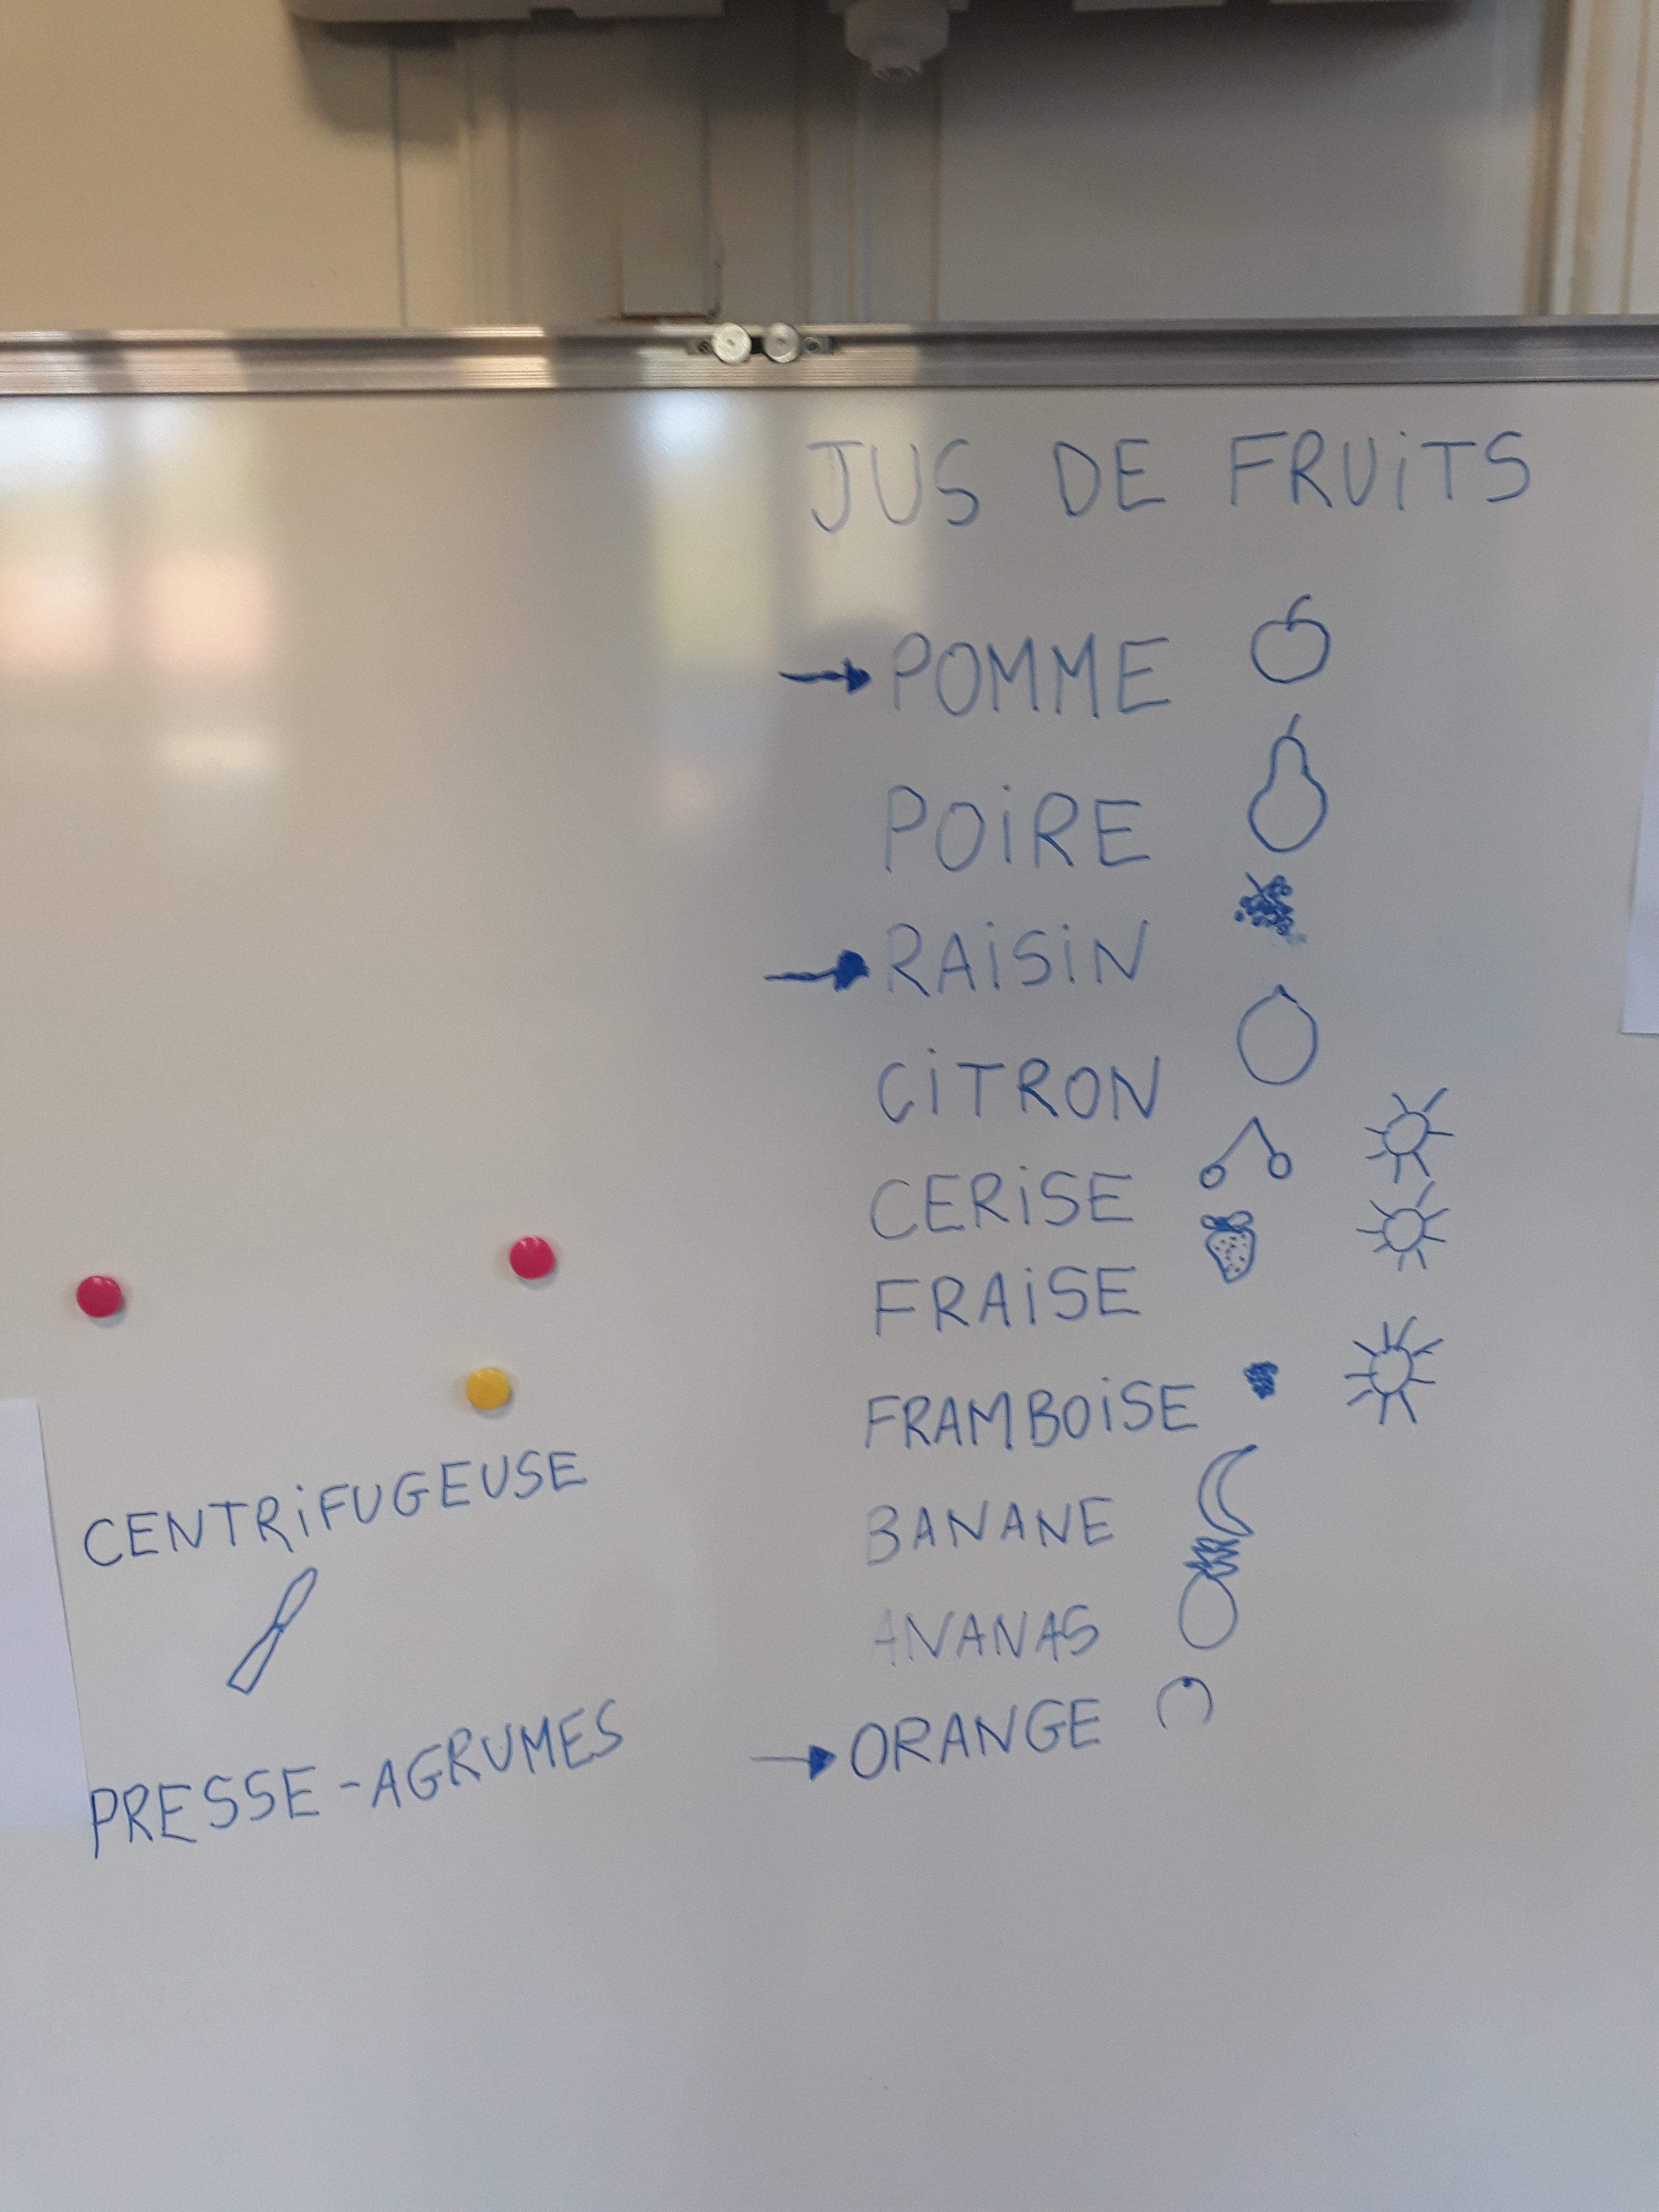 JUS DE FRUiTS
POMME
POiRE
RAiSiN
CiTRON
CERiSE
FRAiSE
FRAMBOiSE
BANANE
ANANAS
ORANGE
CENTRiFUGEUSE
PRESSE-AGRUMES